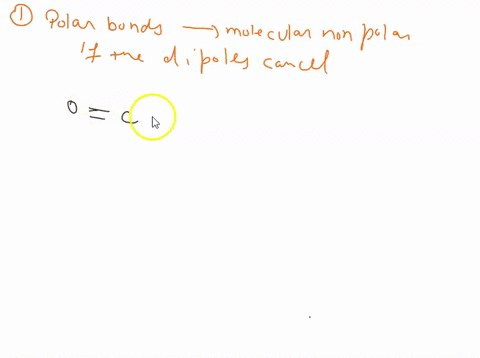 ① Polar bonds → molecular non polar
If the dipoles cancel
O = C